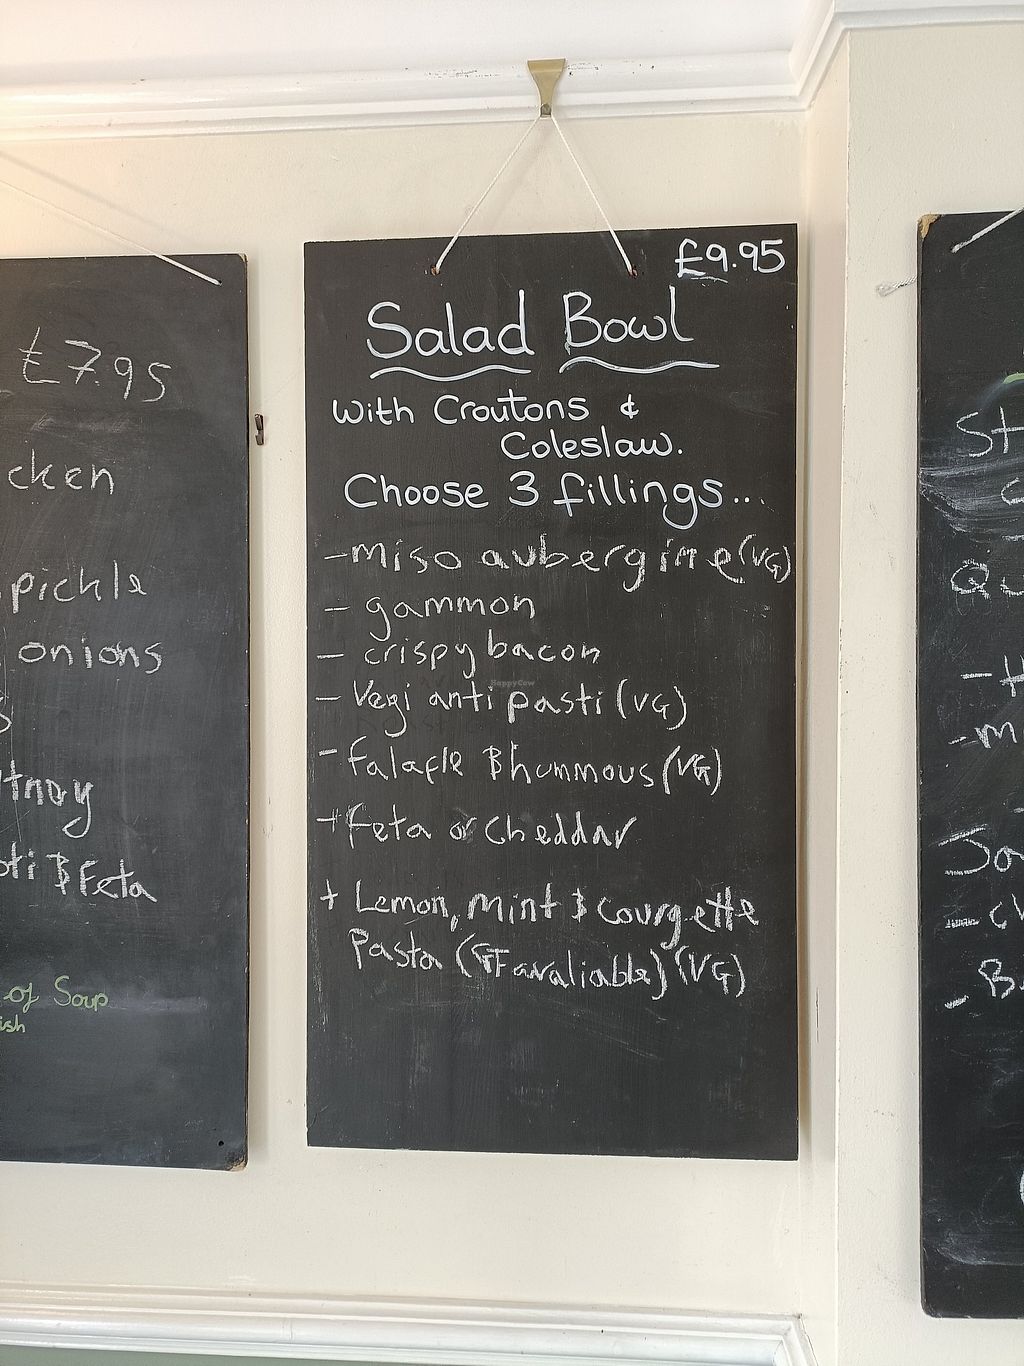 £7.95
cken
pickle
onions
tnay
oti & Feta
of Soup
ish
£9.95
Salad Bowl
with Croutons &
Coleslaw.
Choose 3 fillings...
- miso aubergine (VG)
- gammon
- crispy bacon
- Vegi anti pasti (VG)
- falafle & hummous (VG)
+ feta or cheddar
+ Lemon, mint & courgette
pasta (GF avaliable) (VG)
HappyCow
St
c
Qu
- H
- m
Ja
- ch
- B